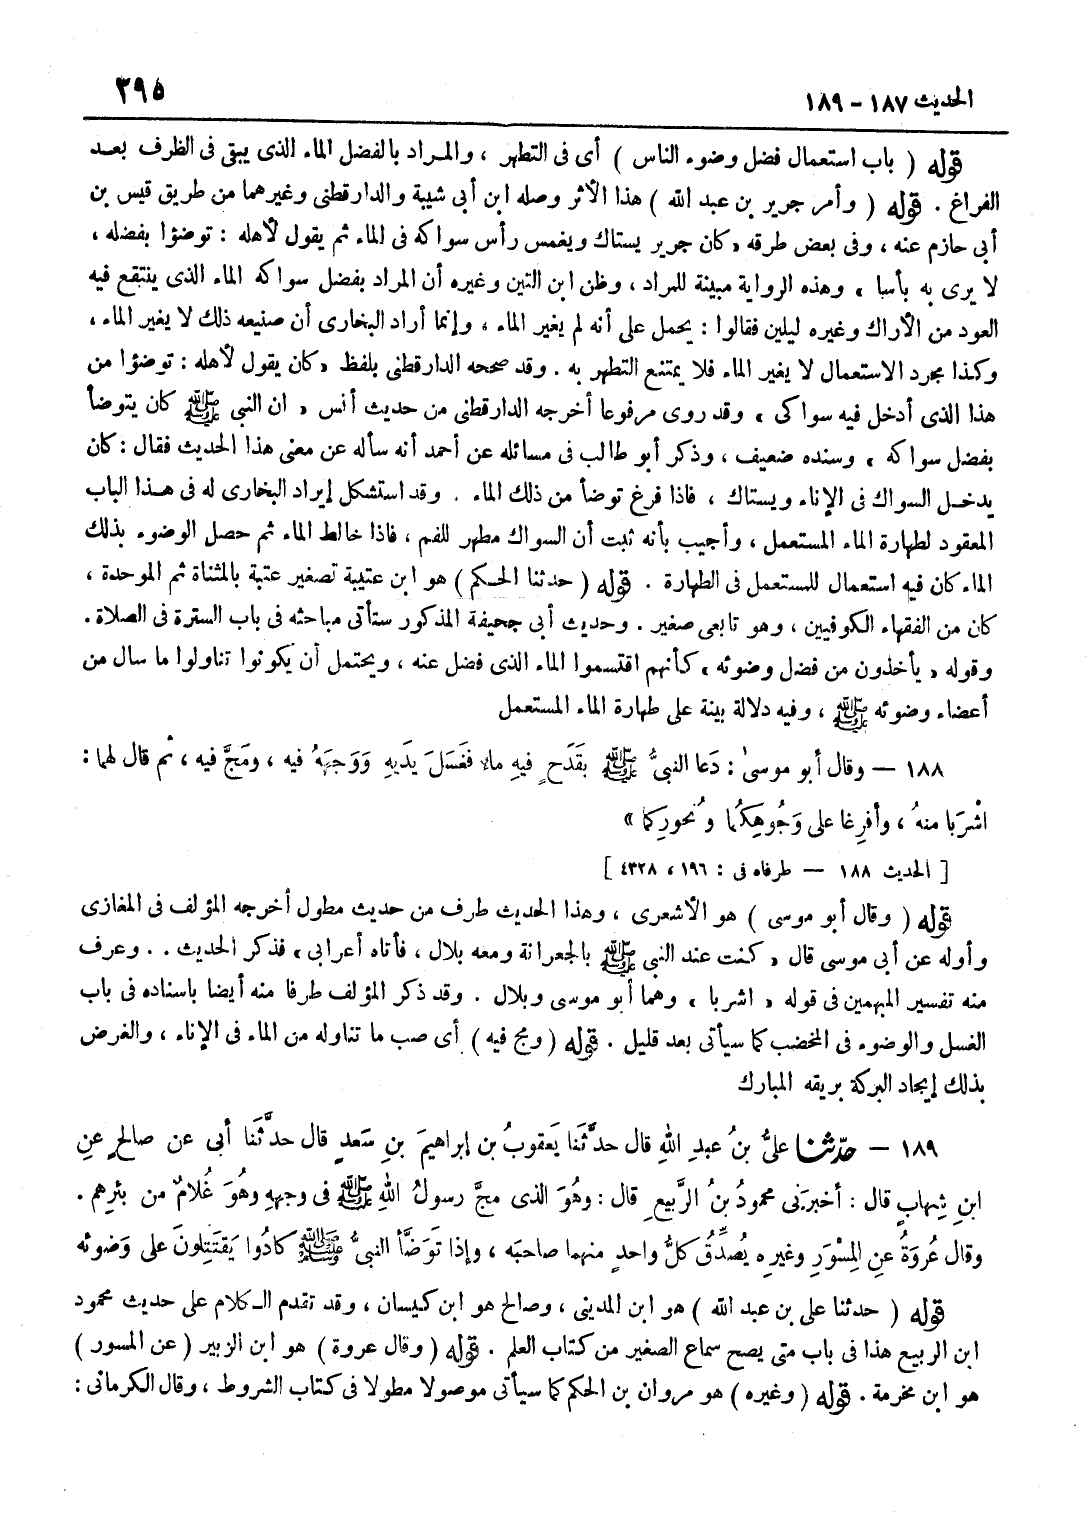 الحديث ١٨٧ - ١٨٩
٢٩٥
قوله ( باب استعمال فضل وضوء الناس ) أى فى التطهر ، والمراد بالفضل الماء الذى يبقى فى الظرف بعد
الفراغ . قوله ( وأمر جرير بن عبد الله ) هذا الأثر وصله ابن أبى شيبة والدارقطنى وغيرهما من طريق قيس بن
أبى حازم عنه ، وفى بعض طرقه « كان جرير يستاك ويغمس رأس سواكه فى الماء ثم يقول لأهله : توضؤا بفضله ،
لا يرى به بأسا » وهذه الرواية مبينة للمراد ، وظن ابن التين وغيره أن المراد بفضل سواكه الماء الذى ينتقع فيه
العود من الأراك وغيره ليلين فقالوا : يحمل على أنه لم يغير الماء ، وإنما أراد البخارى أن صنيعه ذلك لا يغير الماء ،
وكذا مجرد الاستعمال لا يغير الماء فلا يمتنع التطهر به . وقد صححه الدارقطنى بلفظ « كان يقول لأهله : توضؤا من
هذا الذى أدخل فيه سواكى » وقد روى مرفوعا أخرجه الدارقطنى من حديث أنس « ان النبى ﷺ كان يتوضأ
بفضل سواكه » وسنده ضعيف ، وذكر أبو طالب فى مسائله عن أحمد أنه سأله عن معنى هذا الحديث فقال : كان
يدخل السواك فى الإناء ويستاك ، فاذا فرغ توضأ من ذلك الماء . وقد استشكل إيراد البخارى له فى هذا الباب
المعقود لطهارة الماء المستعمل ، وأجيب بأنه ثبت أن السواك مطهر للفم ، فاذا خالط الماء ثم حصل الوضوء بذلك
الماء كان فيه استعمال للمستعمل فى الطهارة . قوله ( حدثنا الحكم ) هو ابن عتيبة تصغير عتبة بالمثناة ثم الموحدة ،
كان من الفقهاء الكوفيين ، وهو تابعى صغير . وحديث أبى جحيفة المذكور ستأتى مباحثه فى باب السترة فى الصلاة .
وقوله « يأخذون من فضل وضوئه » كأنهم اقتسموا الماء الذى فضل عنه ، ويحتمل أن يكونوا تناولوا ما سال من
أعضاء وضوئه ﷺ ، وفيه دلالة بينة على طهارة الماء المستعمل
١٨٨ — وقال أبو موسىٰ : دَعا النبىُّ ﷺ بقَدَحٍ فيهِ ماءٌ فغَسَلَ يَدَيهِ وَوَجهَهُ فيه ، ومَجَّ فيه ، ثم قال لهما :
اشْرَبا منهُ ، وأفرِغا على وَجُوهِكُما ونُحورِكما »
[ الحديث ١٨٨ — طرفاه فى : ١٩٦ ، ٤٣٢٨ ]
قوله ( وقال أبو موسى ) هو الأشعرى ، وهذا الحديث طرف من حديث مطول أخرجه المؤلف فى المغازى
وأوله عن أبى موسى قال « كنت عند النبى ﷺ بالجعرانة ومعه بلال ، فأتاه أعرابى » فذكر الحديث . . وعرف
منه تفسير المبهمين فى قوله « اشربا » وهما أبو موسى وبلال . وقد ذكر المؤلف طرفا منه أيضا باسناده فى باب
الغسل والوضوء فى المخضب كما سيأتى بعد قليل . قوله ( ومج فيه ) أى صب ما تناوله من الماء فى الإناء ، والغرض
بذلك إيجاد البركة بريقه المبارك
١٨٩ — حدّثنا علىُّ بنُ عبدِ اللهِ قال حدَّثَنا يَعقوبُ بن إبراهيمَ بنِ سَعدٍ قال حدَّثَنا أبى عن صالحٍ عنِ
ابنِ شِهابٍ قال : أخبرَنى محمودُ بنُ الرَّبيعِ قال : وهُوَ الذى مجَّ رسولُ اللهِ ﷺ فى وجههِ وهُوَ غُلامٌ من بئرِهم .
وقال عُروَةُ عنِ المِسْوَرِ وغيرِه يُصدِّقُ كلُّ واحدٍ منهما صاحبَه ، وإذا توَضَّأَ النبىُّ ﷺ كادُوا يَقتَتِلونَ على وَضوئه
قوله ( حدثنا على بن عبد الله ) هو ابن المدينى ، وصالح هو ابن كيسان ، وقد تقدم الكلام على حديث محمود
ابن الربيع هذا فى باب متى يصح سماع الصغير من كتاب العلم . قوله ( وقال عروة ) هو ابن الزبير ( عن المسور )
هو ابن مخرمة . قوله ( وغيره ) هو مروان بن الحكم كما سيأتى موصولا مطولا فى كتاب الشروط ، وقال الكرمانى :